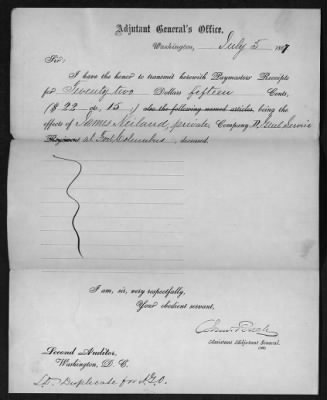 Adjutant General's Office,
Washington, July 5 187
Sir:
I have the honor to transmit herewith Paymasters' Receipts
for Twenty two Dollars fifteen Cents,
($ 22 dc. 15) also the following named articles, being the
effects of James Neiland, private, Company Genl Service
Regiment at Fort Columbus, deceased.
I am, sir, very respectfully,
Your obedient servant,
Assistant Adjutant General.
Second Auditor,
Washington, D. C.
Duplicate for A.G.O.